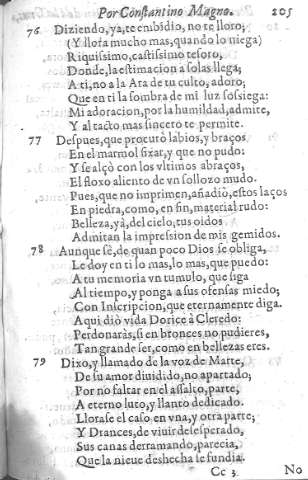 Por Conſtantino Magno. 205
76 Diziendo, ya, te embidio, no te lloro;
(Y llora mucho mas, quando lo niega)
Riquiſsimo, caſtiſsimo teſoro,
Donde, la eſtimacion a ſolas llega;
A ti, no a la Ara de tu culto, adoro;
Que en ti la ſombra de mi luz ſoſsiega:
Mi adoracion, por la humildad, admite,
Y al tacto mas ſincero te permite.
77 Deſpues, que procurò labios, y braços
En el marmol fixar, y que no pudo:
Y ſe alçò con los vltimos abraços,
El floxo aliento de vn ſolloxo mudo.
Pues, que no imprimen, añadiò, eſtos laços
En piedra, como, en fin, material rudo:
Belleza, yà, del cielo, tus oìdos
Admitan la impreſsion de mis gemidos.
78 Aunque ſè, de quan poco Dios ſe obliga,
Le doy en ti lo mas, lo mas, que puedo:
A tu memoria vn tumulo, que ſiga
Al tiempo, y ponga a ſus ofenſas miedo;
Con Inſcripcion, que eternamente diga.
Aqui diò vida Dorice à Cleredo:
Perdonaràs, ſi en bronces no pudieres,
Tan grande ſer, como en bellezas eres.
79 Dixo, y llamado de la voz de Marte,
De ſu amor diuidido, no apartado;
Por no faltar en el aſſalto, parte,
A eterno luto, y llanto dedicado.
Lloraſe el caſo en vna, y otra parte;
Y Drances, de viuir deſeſperado,
Sus canas derramando, parecia,
Que la nieue deshecha ſe fundia.
Cc 3 No